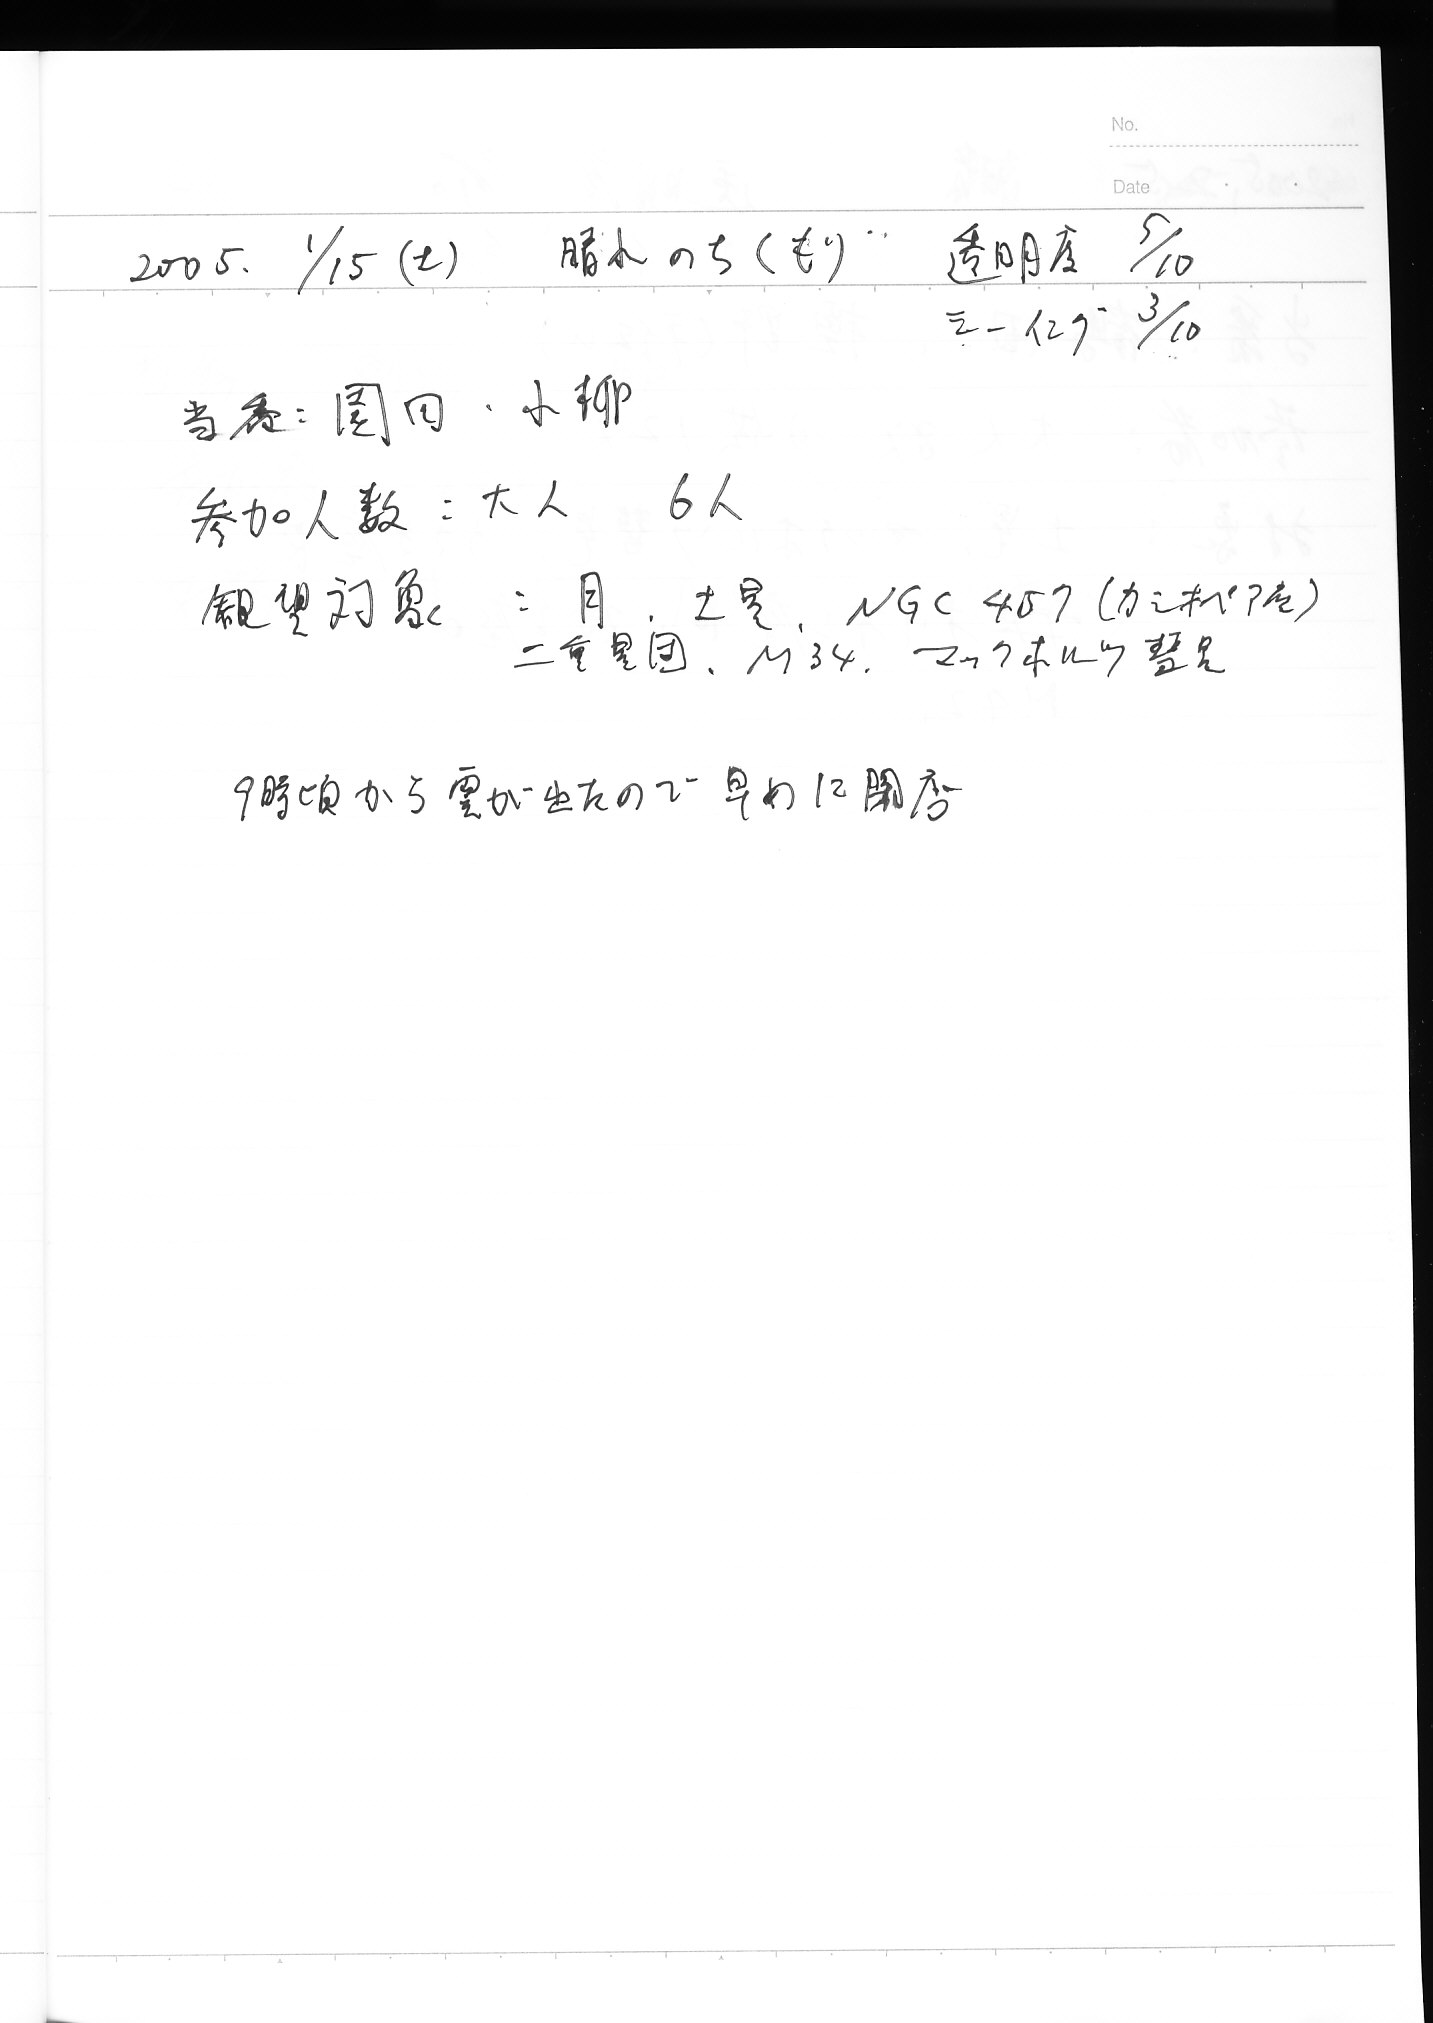 No.
Date
2005. 1/15 (土) 晴れのちくもり 透明度 5/10
シーイング 3/10
当番: 園田・小柳
参加人数:大人 6人
観望対象 : 月、土星、NGC 457 (カシオペア座)
二重星団、M34、マックホルツ彗星
9時頃から雲が出たので早めに閉店